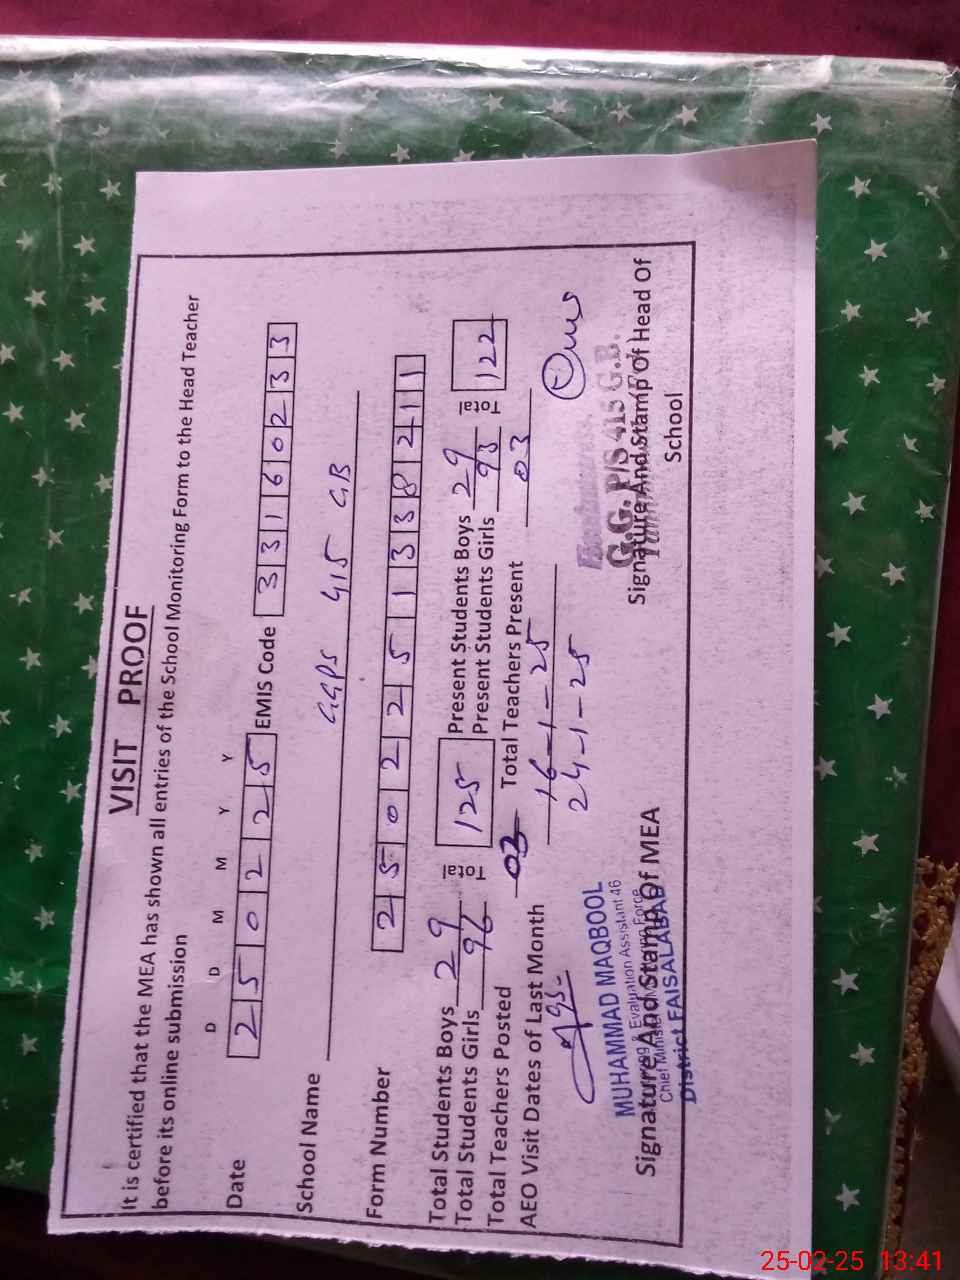 VISIT PROOF
It is certified that the MEA has shown all entries of the School Monitoring Form to the Head Teacher
before its online submission
D D M M Y Y
Date 2 5 0 2 2 5 EMIS Code 3 3 1 6 0 2 3 3
School Name GGPS 415 GB
Form Number 2 5 0 2 2 5 1 3 3 8 2 1 1
Total Students Boys 29 Total 125 Present Students Boys 29 Total 122
Total Students Girls 96 Present Students Girls 93
Total Teachers Posted 03 Total Teachers Present 03
AEO Visit Dates of Last Month 16-1-25
24-1-25
MUHAMMAD MAQBOOL
Monitoring & Evaluation Assistant 46
Chief Minister's Monitoring Force
District FAISALABAD
Signature And Stamp Of MEA
G.G. P/S 415 G.B.
Signature And Stamp Of Head Of
School
25-02-25 13:41